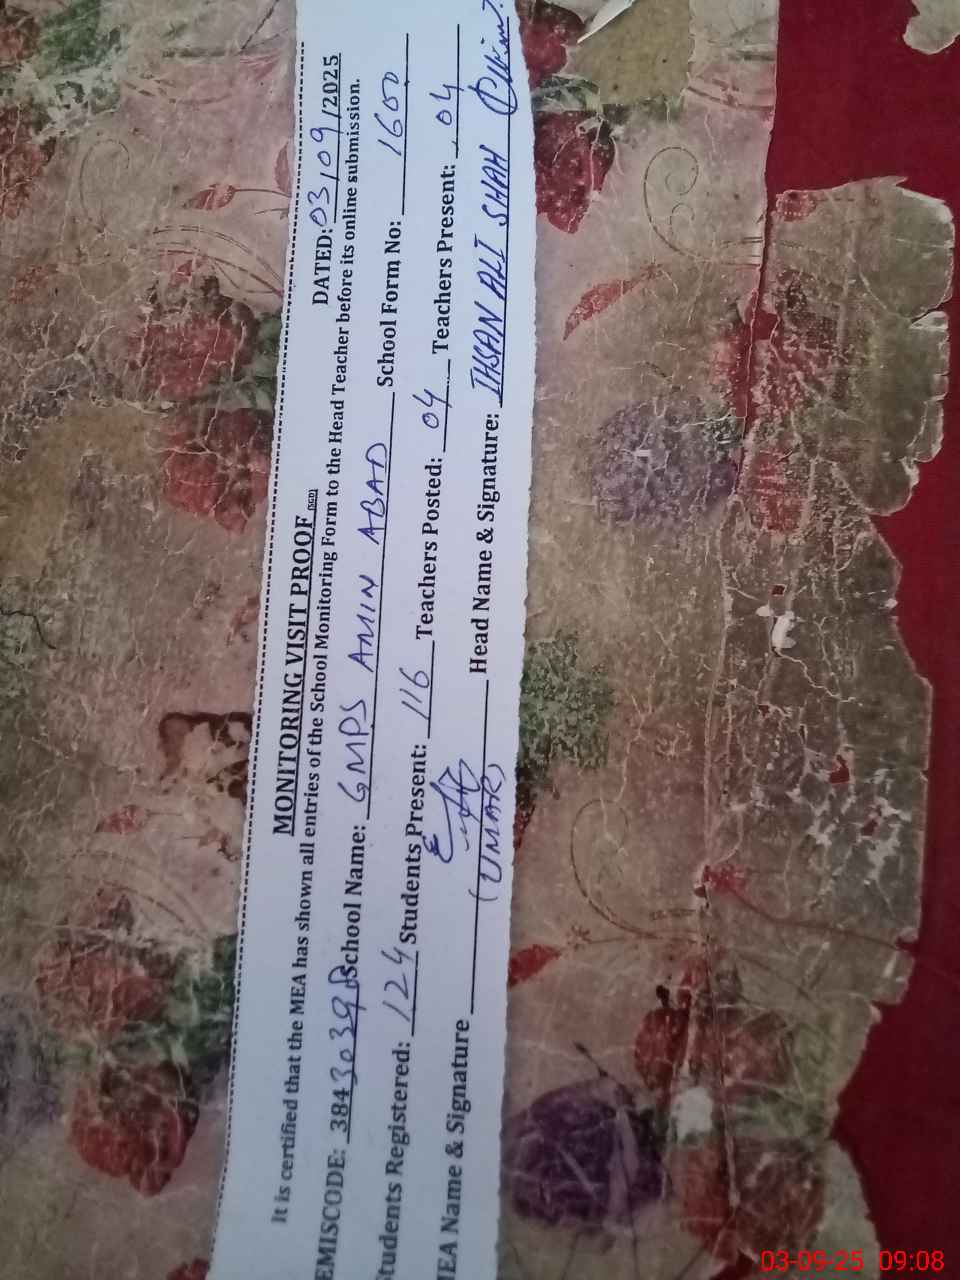 MONITORING VISIT PROOF (SCD) DATED: 03/09/2025
It is certified that the MEA has shown all entries of the School Monitoring Form to the Head Teacher before its online submission.
EMISCODE: 38430398 School Name: GMPS AMIN ABAD School Form No: 1600
Students Registered: 124 Students Present: 116 Teachers Posted: 04 Teachers Present: 04
MEA Name & Signature (UMAR) Head Name & Signature: IHSAN ALI SHAH
03-09-25 09:08